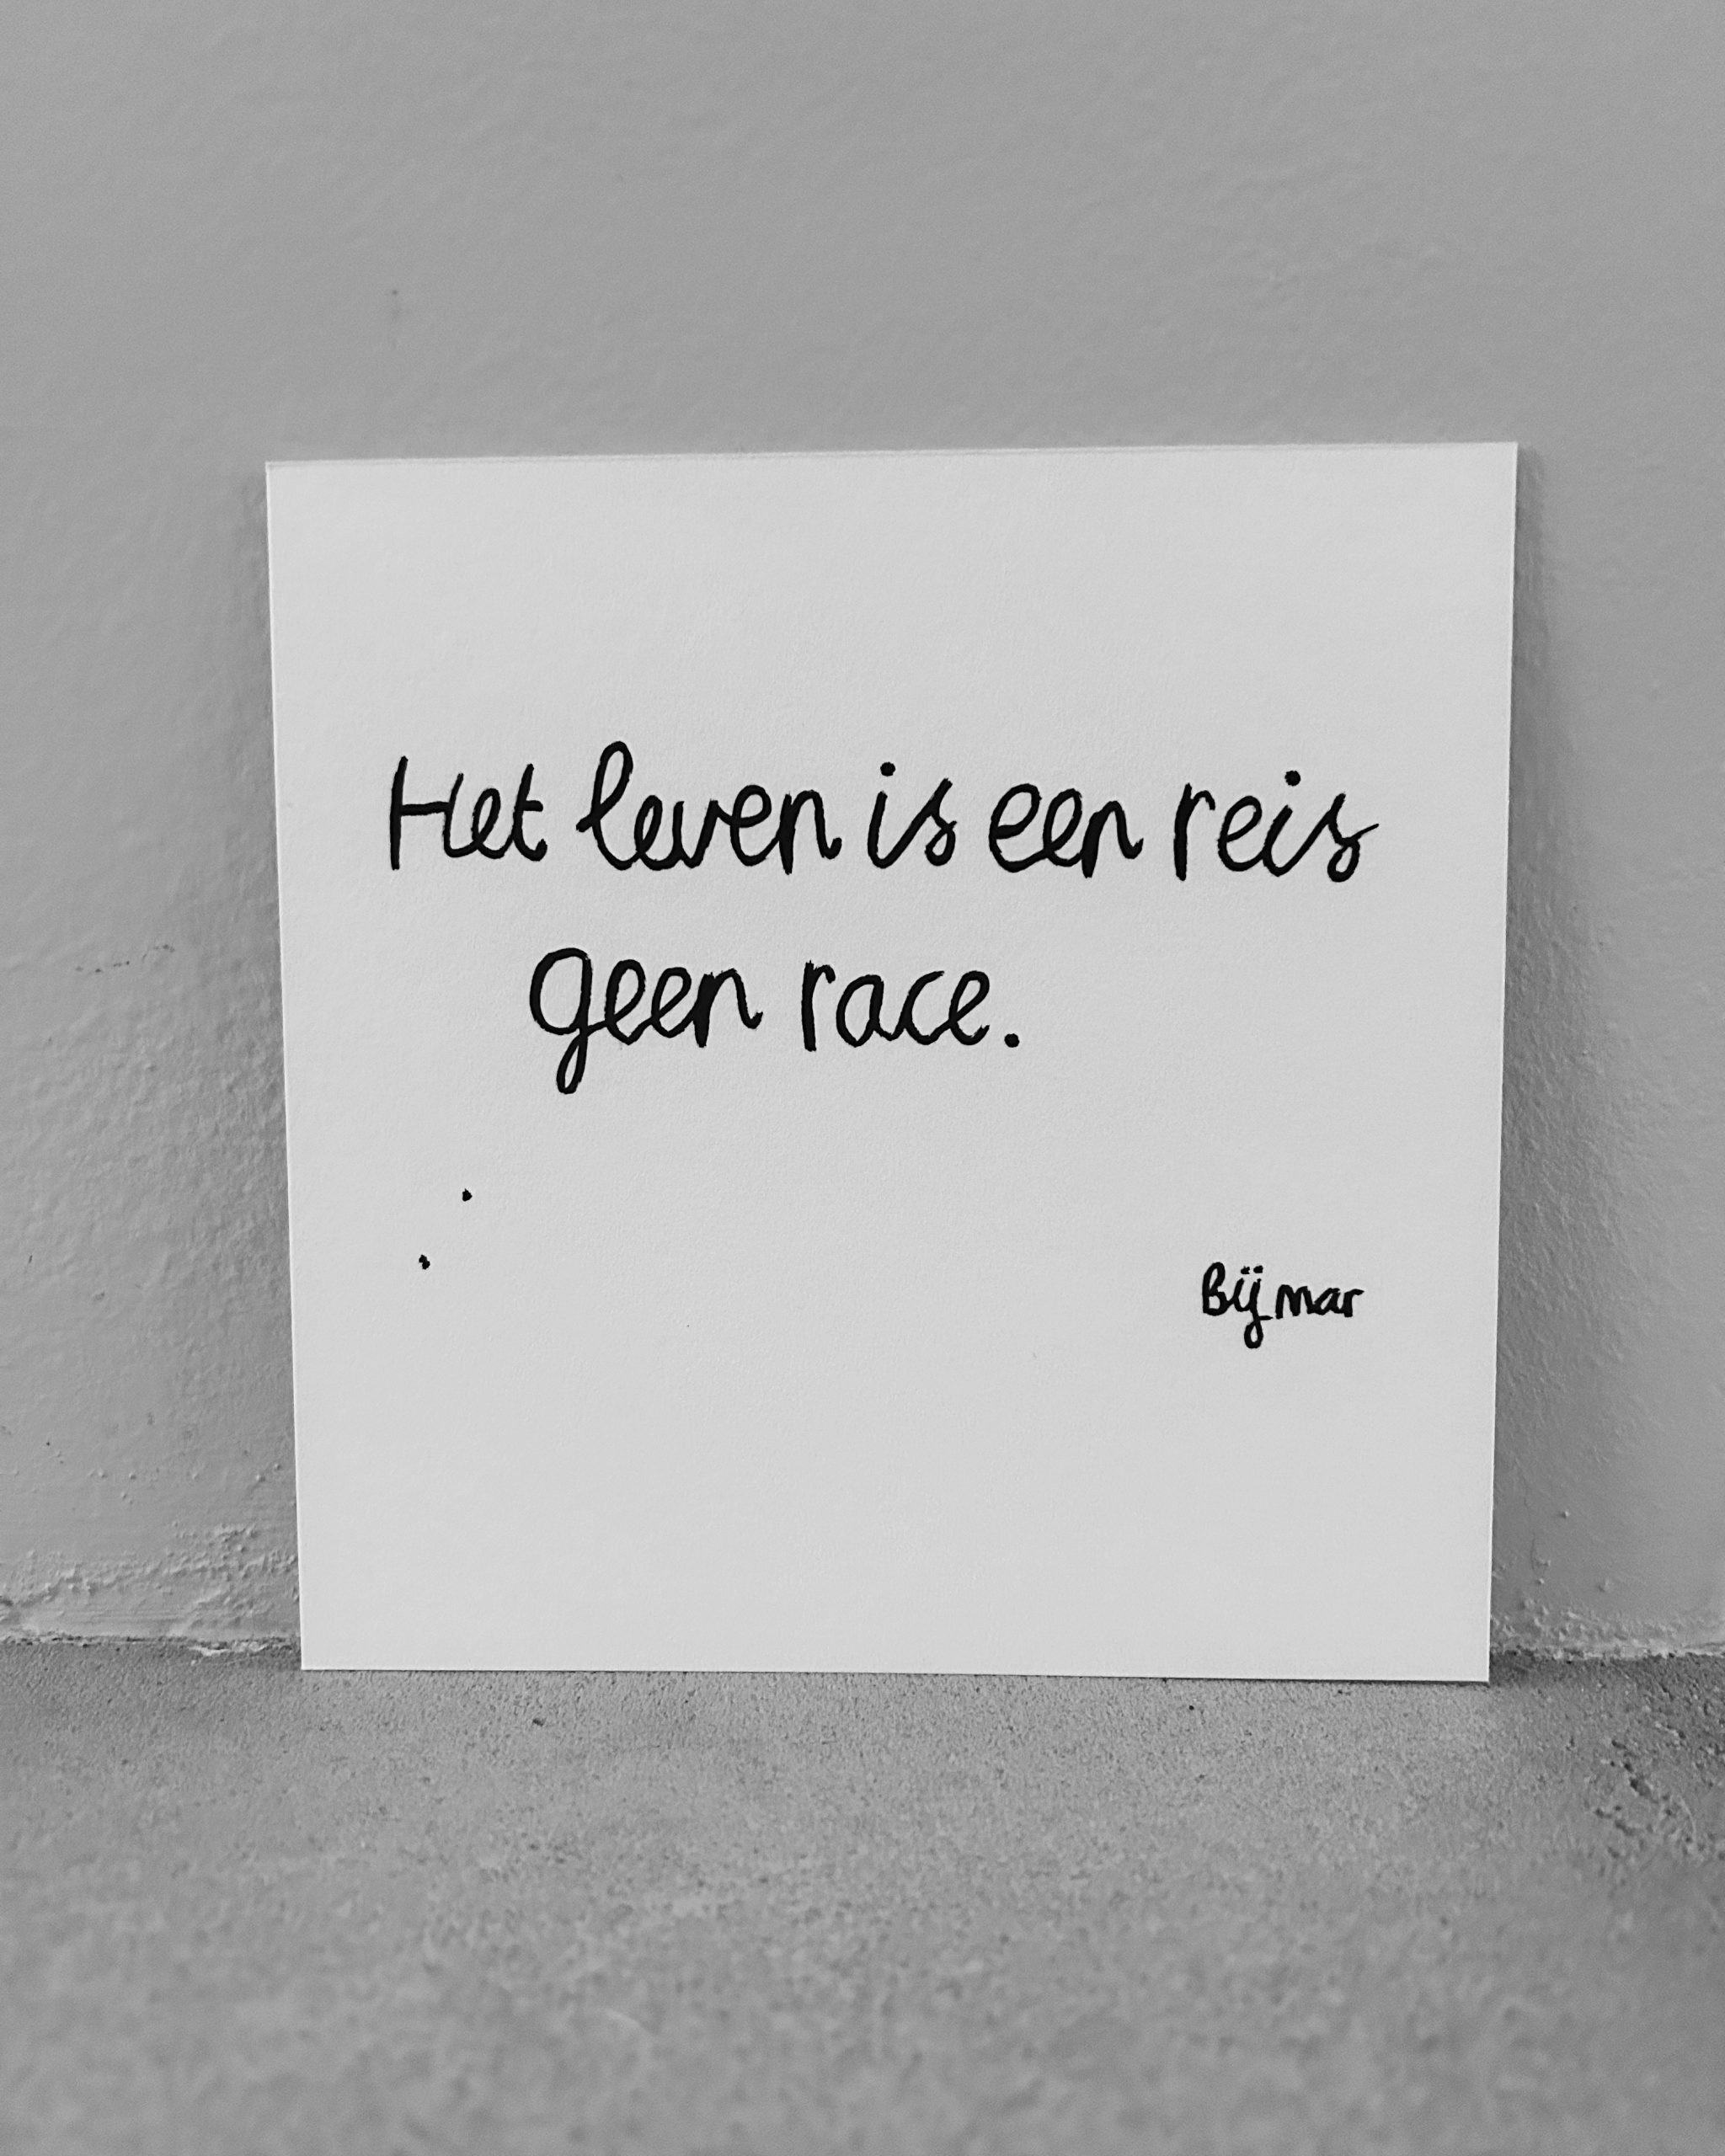 Het leven is een reis
geen race.
Bij mar